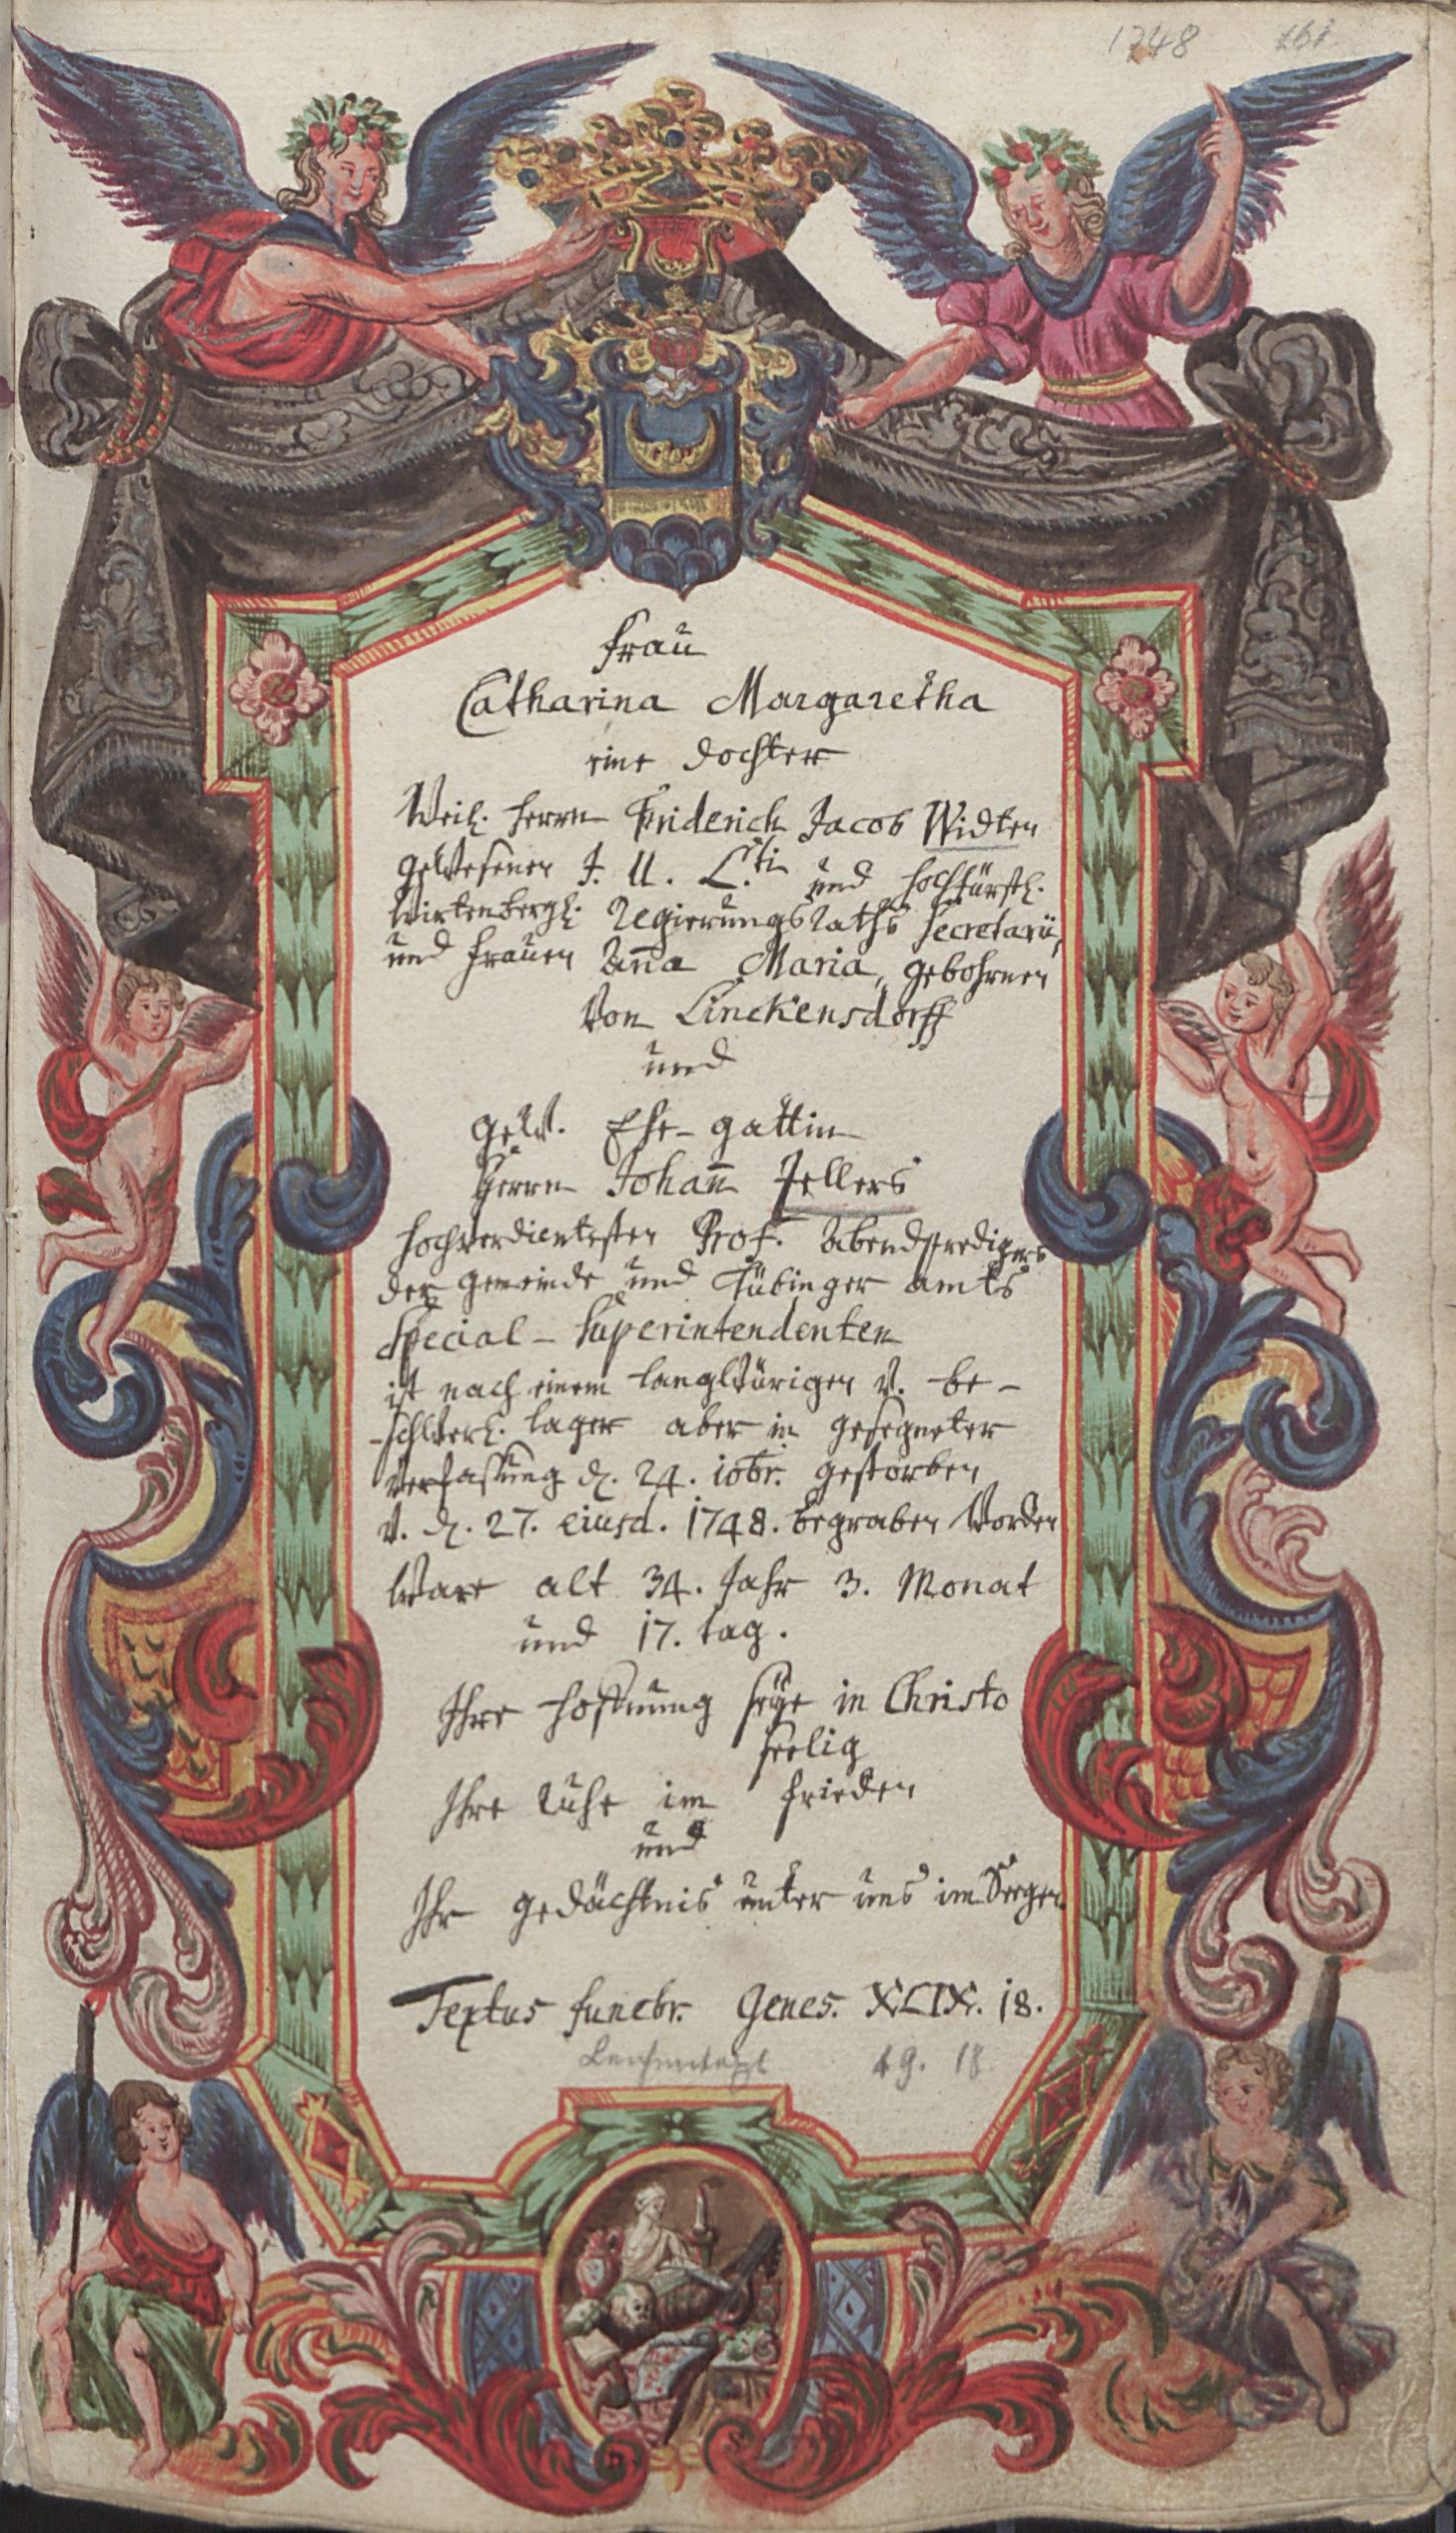 1748 161
Frau
Catharina Margaretha
eine Dochter
Weil. Herrn Friderich Jacob Widten
gewesenen J. U. L.ti und Hochfürstl.
Wirtenbergl. Regierungs Raths Secretarii,
und Frauen Aña Maria, gebohrnen
Von Linckensdorff
und
gew. Ehe-gattin
Herrn Johañ Zellers
Hochverdientesten Prof. Abendpredigers
der gemeinde und Tübinger amts
Special-Superintendenten
ist nach einem langwürigen v. be-
-schwerl. lager aber in gesegneter
Verfassung d. 24. 10br. gestorben
v. d. 27. eiusd. 1748. begraben worden
Ware alt 34. Jahr 3. Monat
und 17. tag.
Ihre Hoffnung seÿe in Christo
seelig
Ihre Ruhe im Frieden
und
Ihr gedächtnis unter uns im Seegen.
Textus funebr. Genes. XLIX. 18.
Leichentext 49. 18